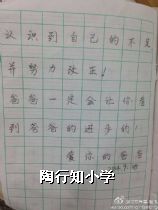 认识到自己的不足
并努力改正！
爸爸一定会让你看
到爸爸的进步的！
爱你的爸爸
陶行知小学